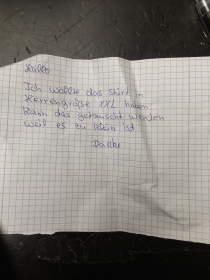 Hallo
Ich wollte das Shirt in
Herrengröße XXL haben
Kann das getauscht werden
weil es zu klein ist
Danke